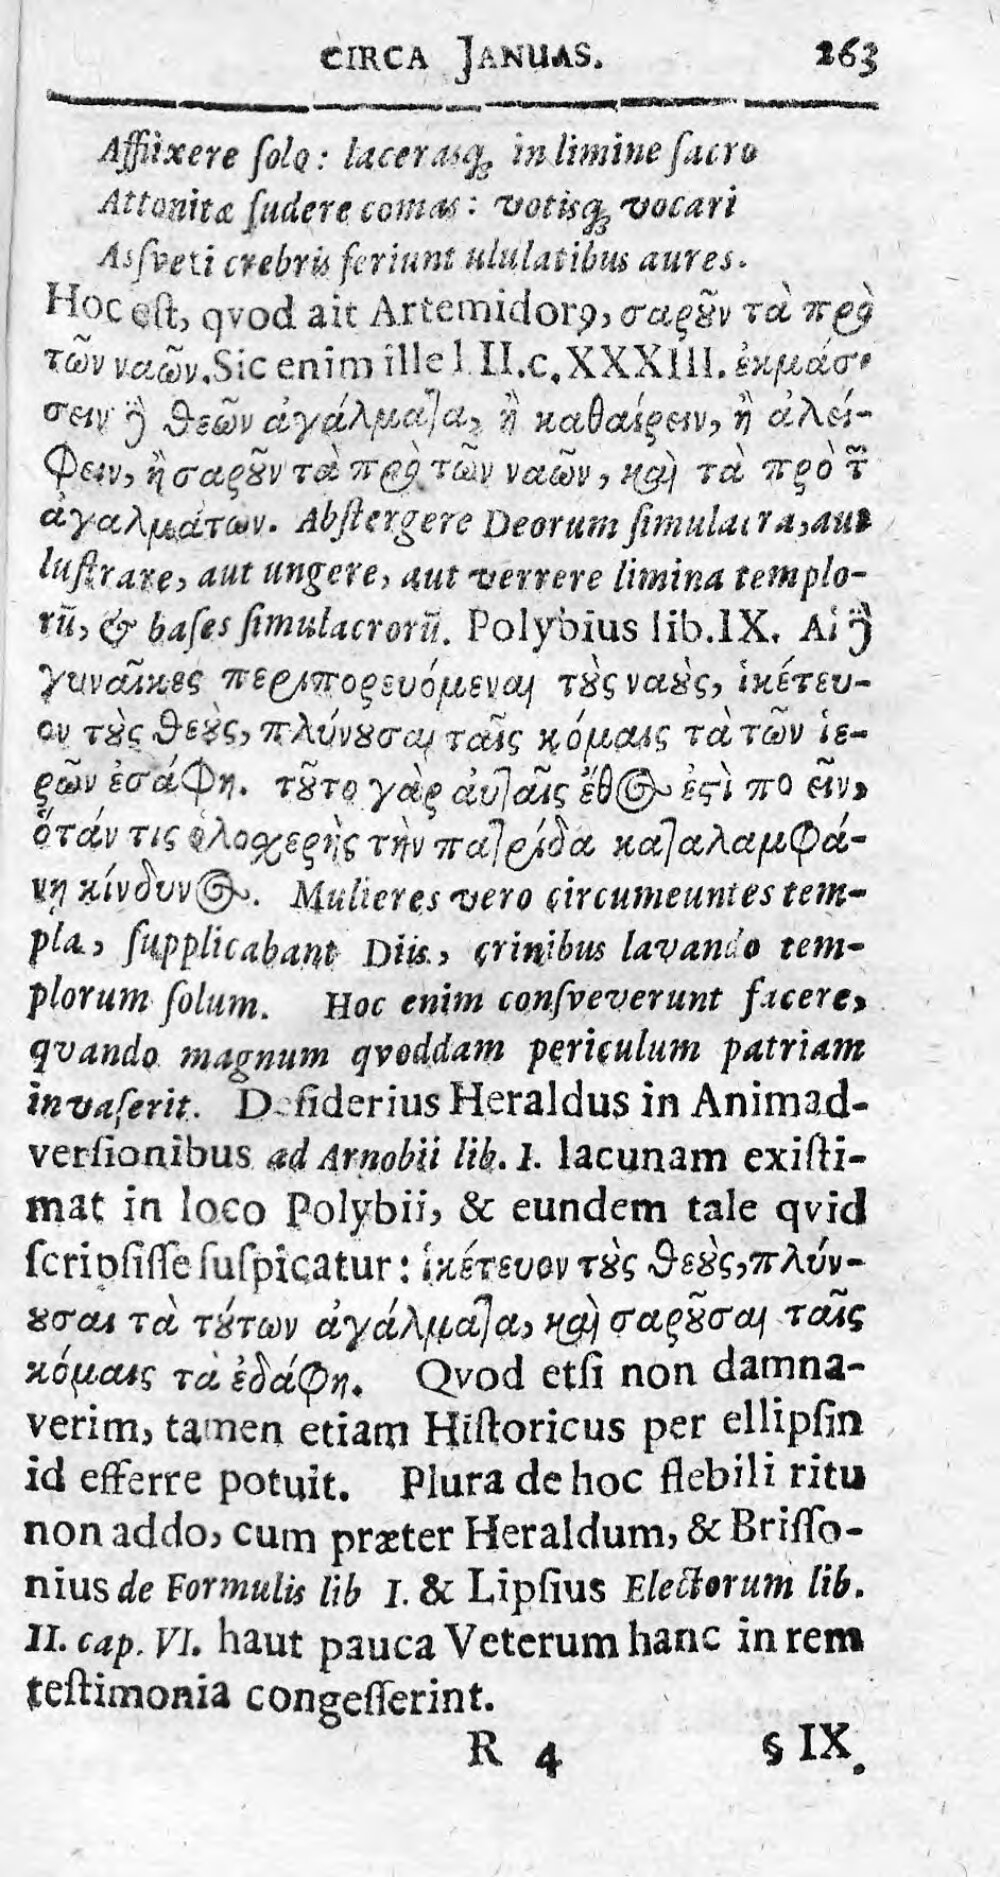 CIRCA JANUAS. 263
Affixere solo: lacerasq; in limine sacro
Attonitæ fudere comas: votisq; vocari
Assveti crebris feriunt ululatibus aures.
Hoc est, qvod ait Artemidorꝰ, σαρȣ͂ν τὰ πρὸ
τῶν ναῶν. Sic enim ille l II. c. XXXIII. ἐκμάσ-
σειν ἢ θεῶν ἀγάλματα, ἢ καθαίρειν, ἢ ἀλεί-
φειν, ἢ σαρȣ͂ν τὰ πρὸ τῶν ναῶν, καὶ τὰ πρὸ τ῀
ἀγαλμάτων. Abstergere Deorum simulacra, aut
lustrare, aut ungere, aut verrere limina templo-
rū, & bases simulacrorū. Polybius lib. IX. Αἱ δὲ
γυναῖκες περιπορευόμεναι τȣ̀ς ναȣ́ς, ἱκέτευ-
ον τȣ̀ς θεȣ́ς, πλύνȣσαι ταῖς κόμαις τὰ τῶν ἱε-
ρῶν ἐσάφη. τȣ͂το γὰρ αὐταῖς ἔθος ἐστὶ πο εῖν,
ὅτάν τις ὁλοχερὴς τὴν πατρίδα καταλαμφά-
νῃ κίνδυνος. Mulieres vero circumeuntes tem-
pla, supplicabant Diis, crinibus lavando tem-
plorum solum. Hoc enim consveverunt facere,
qvando magnum qvoddam periculum patriam
invaserit. Desiderius Heraldus in Animad-
versionibus ad Arnobii lib. I. lacunam existi-
mat in loco Polybii, & eundem tale qvid
scripsisse suspicatur: ἱκέτευον τȣ̀ς θεȣ́ς, πλύν-
ȣσαι τὰ τȣ́των ἀγάλματα, καὶ σαρȣ͂σαι ταῖς
κόμαις τὰ ἐδάφη. Qvod etsi non damna-
verim, tamen etiam Historicus per ellipsin
id efferre potuit. Plura de hoc flebili ritu
non addo, cum præter Heraldum, & Brisso-
nius de Formulis lib I. & Lipsius Electorum lib.
II. cap. VI. haut pauca Veterum hanc in rem
testimonia congesserint.
R 4 § IX.